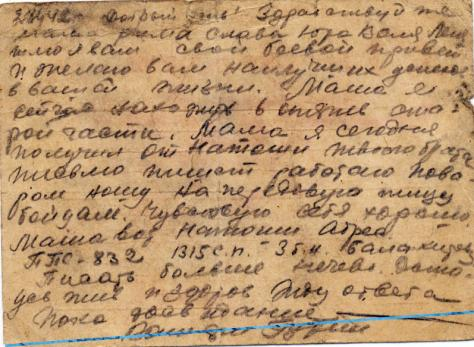 добрый день Здравствуй те
мама рима слава юра Валя
шлю я вам свой боевой привет
и желаю вам наилучших успехо
в вашей жизни. Мама я
сейчас нахожус в опять ста
рой части. Мама я сегодня
получил от Наташи письмо
письмо пишет работаю пова
ром ношу на передовую пищу
бойцам. Чувствую себя хорошо
Мама вот Наташи Адрес
ППС-832 1315 с.п. 3 б.н.
Писать больше нечево.
жив и здоров Жду ответа
Пока до свидание